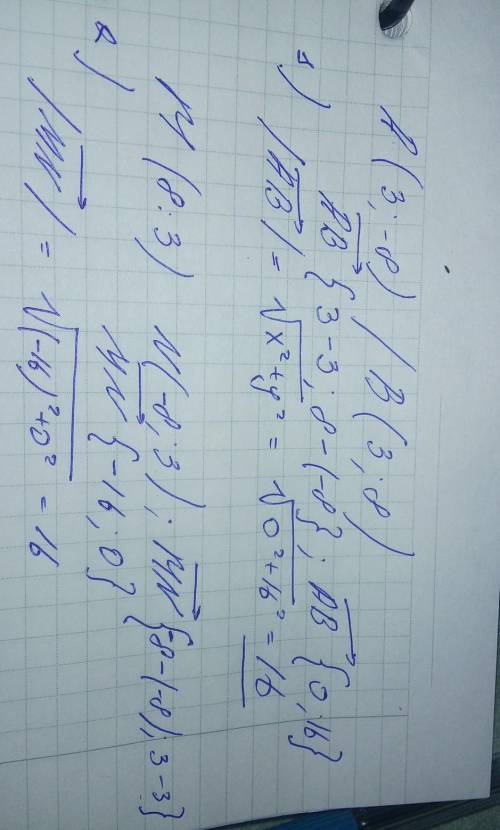 A(3;-8) / B(3;8)
1) AB {3-3; 8-(-8)}; AB {0;16}
|AB| = √x²+y² = √0²+16² = 16
2) M(8;3) N(-8;3); MN {-8-(-8); 3-3}
MN {-16; 0}
|MN| = √(-16)²+0² = 16